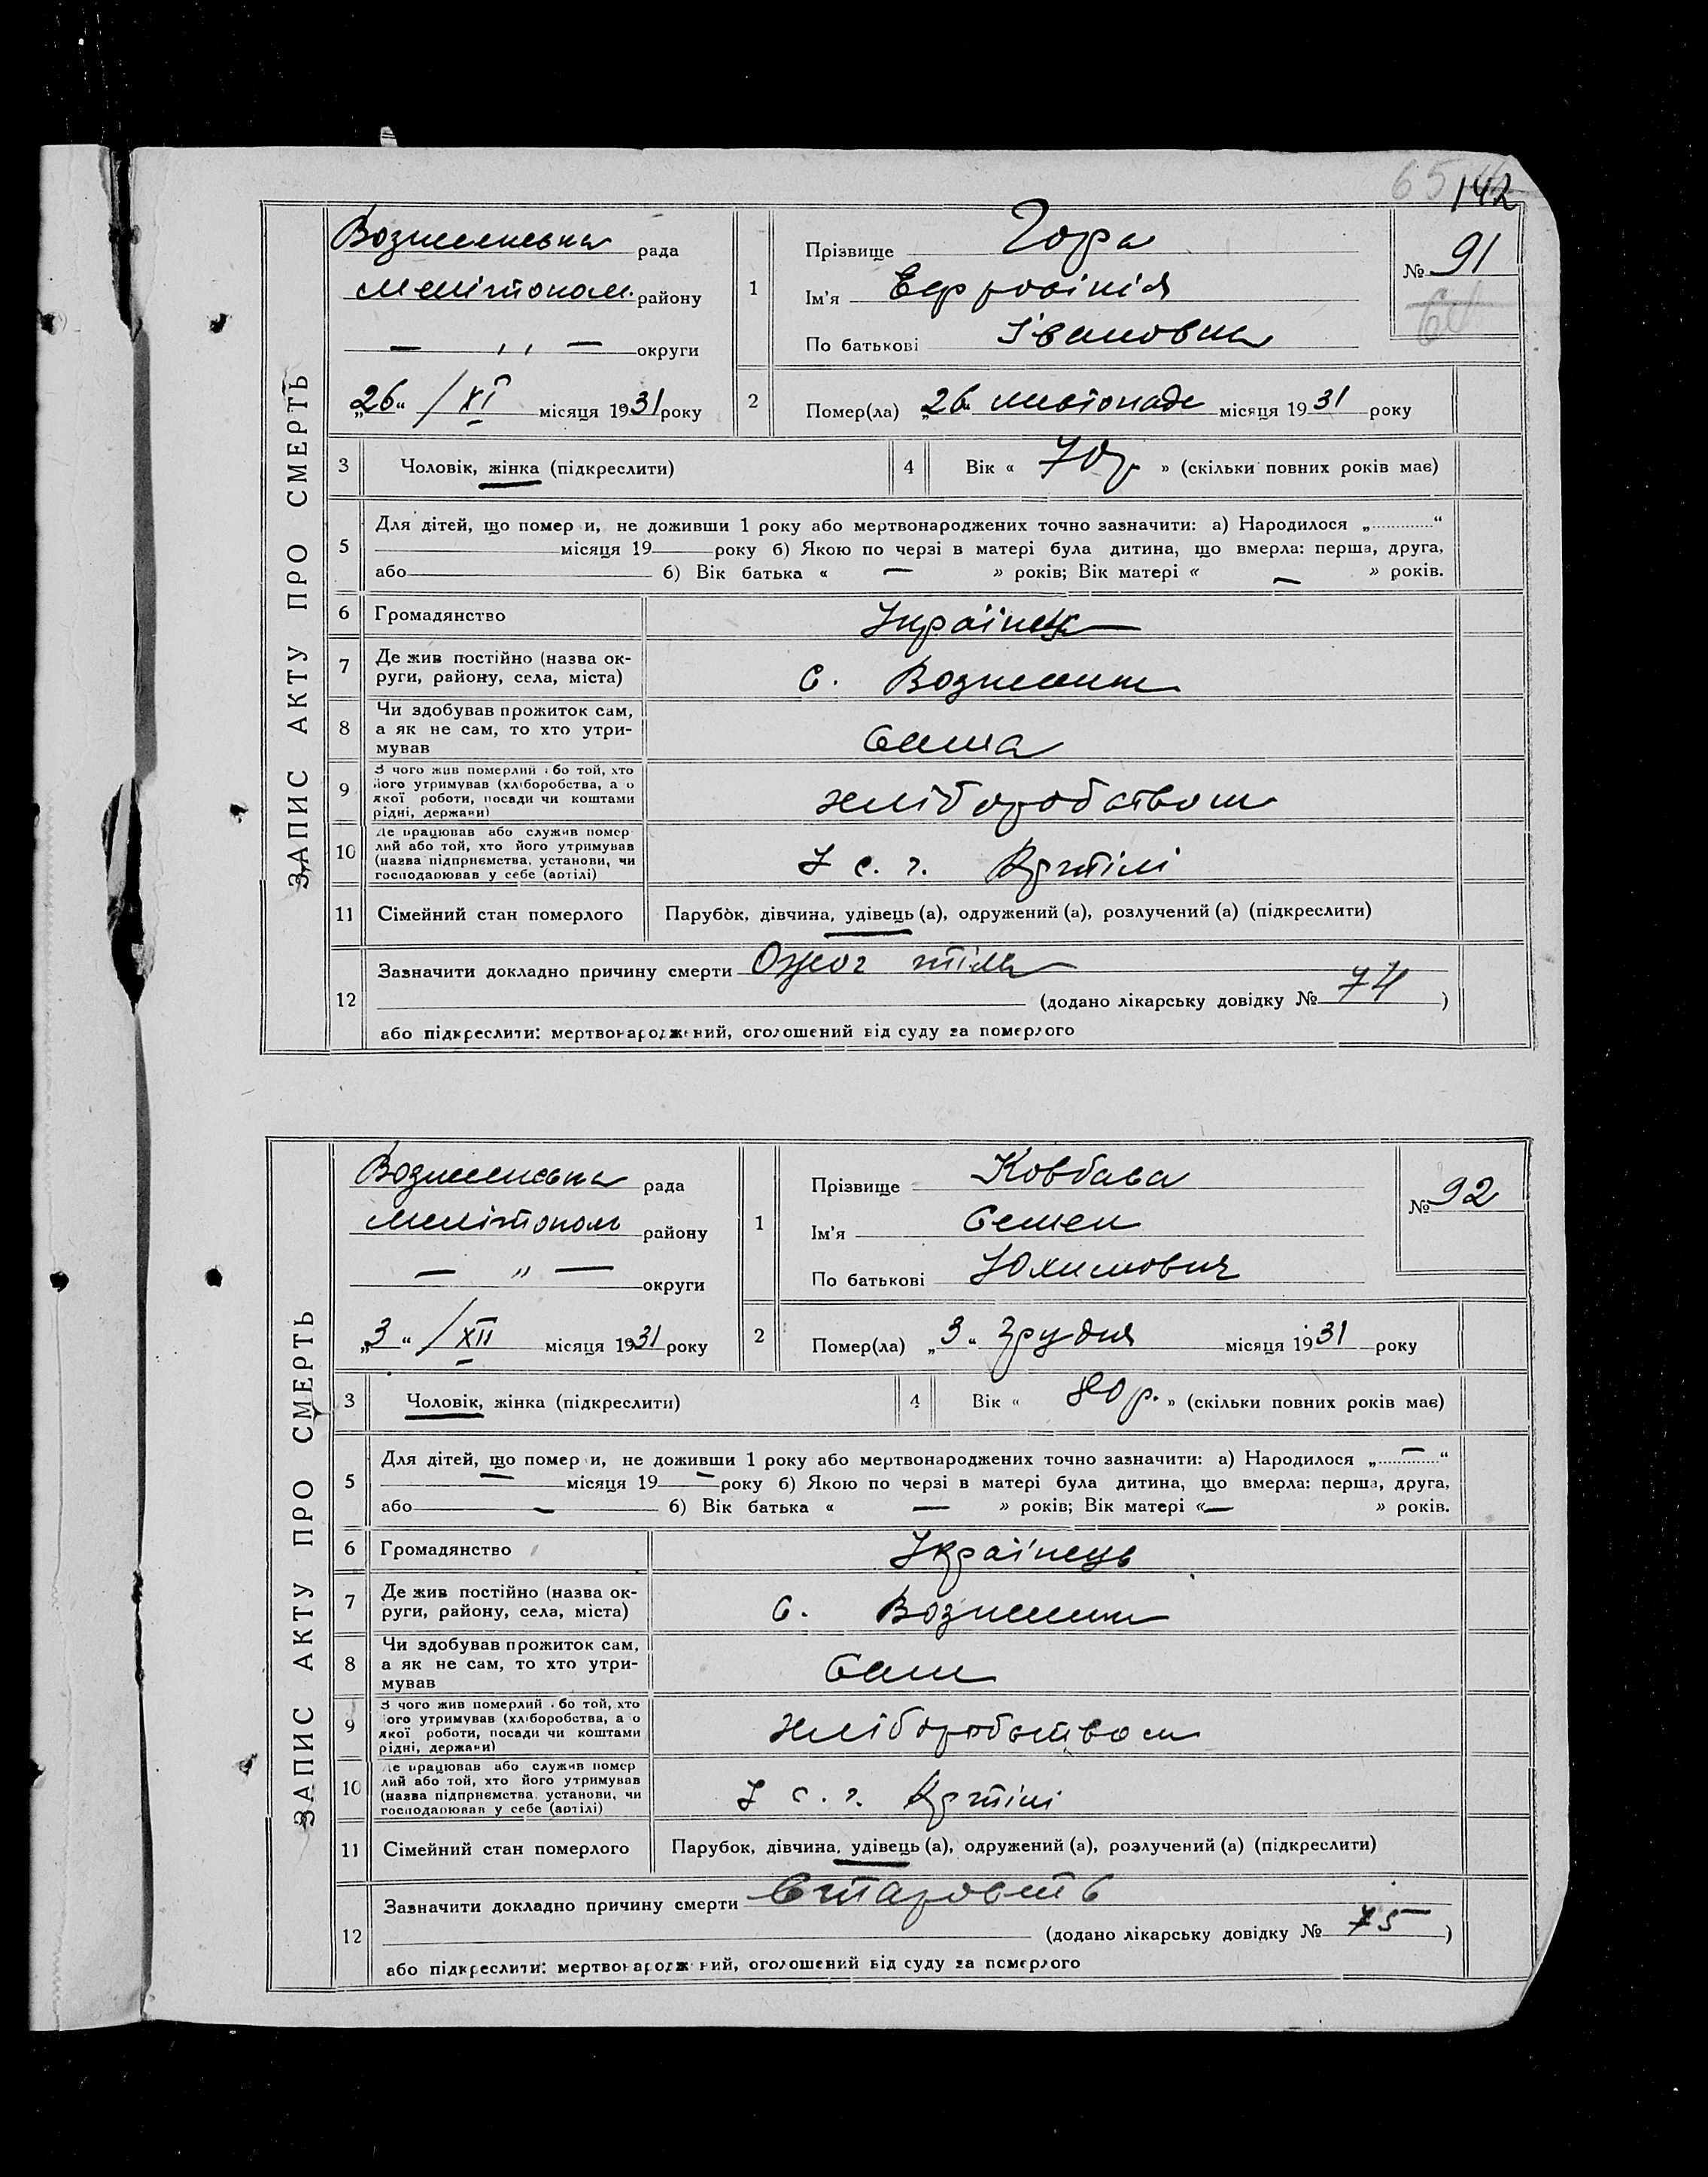 142
ЗАПИС АКТУ ПРО СМЕРТЬ
Вознесенська рада
Мелітопол. району
— ,, — округи
„26“ /XI місяця 1931 року
1
Прізвище Гора
Ім'я Ефросінія
По батькові Івановна
№ 91
2 Помер(ла) „26“ листопада місяця 1931 року
3 Чоловік, жінка (підкреслити)
4 Вік « 70 р. » (скільки повних років має)
5 Для дітей, що помер и, не доживши 1 року або мертвонароджених точно зазначити: а) Народилося „ “
місяця 19 року б) Якою по черзі в матері була дитина, що вмерла: перша, друга,
або б) Вік батька « — » років; Вік матері « — » років.
6 Громадянство Українка
7 Де жив постійно (назва ок-
руги, району, села, міста) с. Вознесенк
8 Чи здобував прожиток сам,
а як не сам, то хто утри-
мував Сама
9 З чого жив померлий або той, хто
його утримував (хліборобства, а о
якої роботи, посади чи коштами
рідні, держави) хліборобством
10 Де працював або служив помер
лий або той, хто його утримував
(назва підприємства, установи, чи
господарював у себе (артілі) У с. г. Артілі
11 Сімейний стан померлого Парубок, дівчина, удівець (а), одружений (а), розлучений (а) (підкреслити)
12 Зазначити докладно причину смерти Ожог тіла
(додано лікарську довідку № 74 )
або підкреслити: мертвонароджений, оголошений від суду за померлого
ЗАПИС АКТУ ПРО СМЕРТЬ
Вознесенська рада
Мелітопол району
— " — округи
„3“ /XII місяця 1931 року
1
Прізвище Ковбаса
Ім'я Семен
По батькові Юхимович
№ 92
2 Помер(ла) „3“ Грудня місяця 1931 року
3 Чоловік, жінка (підкреслити)
4 Вік « 80 р. » (скільки повних років має)
5 Для дітей, що помер и, не доживши 1 року або мертвонароджених точно зазначити: а) Народилося „ — “
— місяця 19 — року б) Якою по черзі в матері була дитина, що вмерла: перша, друга,
або — б) Вік батька « — » років; Вік матері « — » років.
6 Громадянство Українець
7 Де жив постійно (назва ок-
руги, району, села, міста) с. Вознесенк
8 Чи здобував прожиток сам,
а як не сам, то хто утри-
мував Сам
9 З чого жив померлий або той, хто
його утримував (хліборобства, а о
якої роботи, посади чи коштами
рідні, держави) хліборобством
10 Де працював або служив помер
лий або той, хто його утримував
(назва підприємства, установи, чи
господарював у себе (артілі) У с. г. Артілі
11 Сімейний стан померлого Парубок, дівчина, удівець (а), одружений (а), розлучений (а) (підкреслити)
12 Зазначити докладно причину смерти Старость
(додано лікарську довідку № 75 )
або підкреслити: мертвонароджений, оголошений від суду за померлого